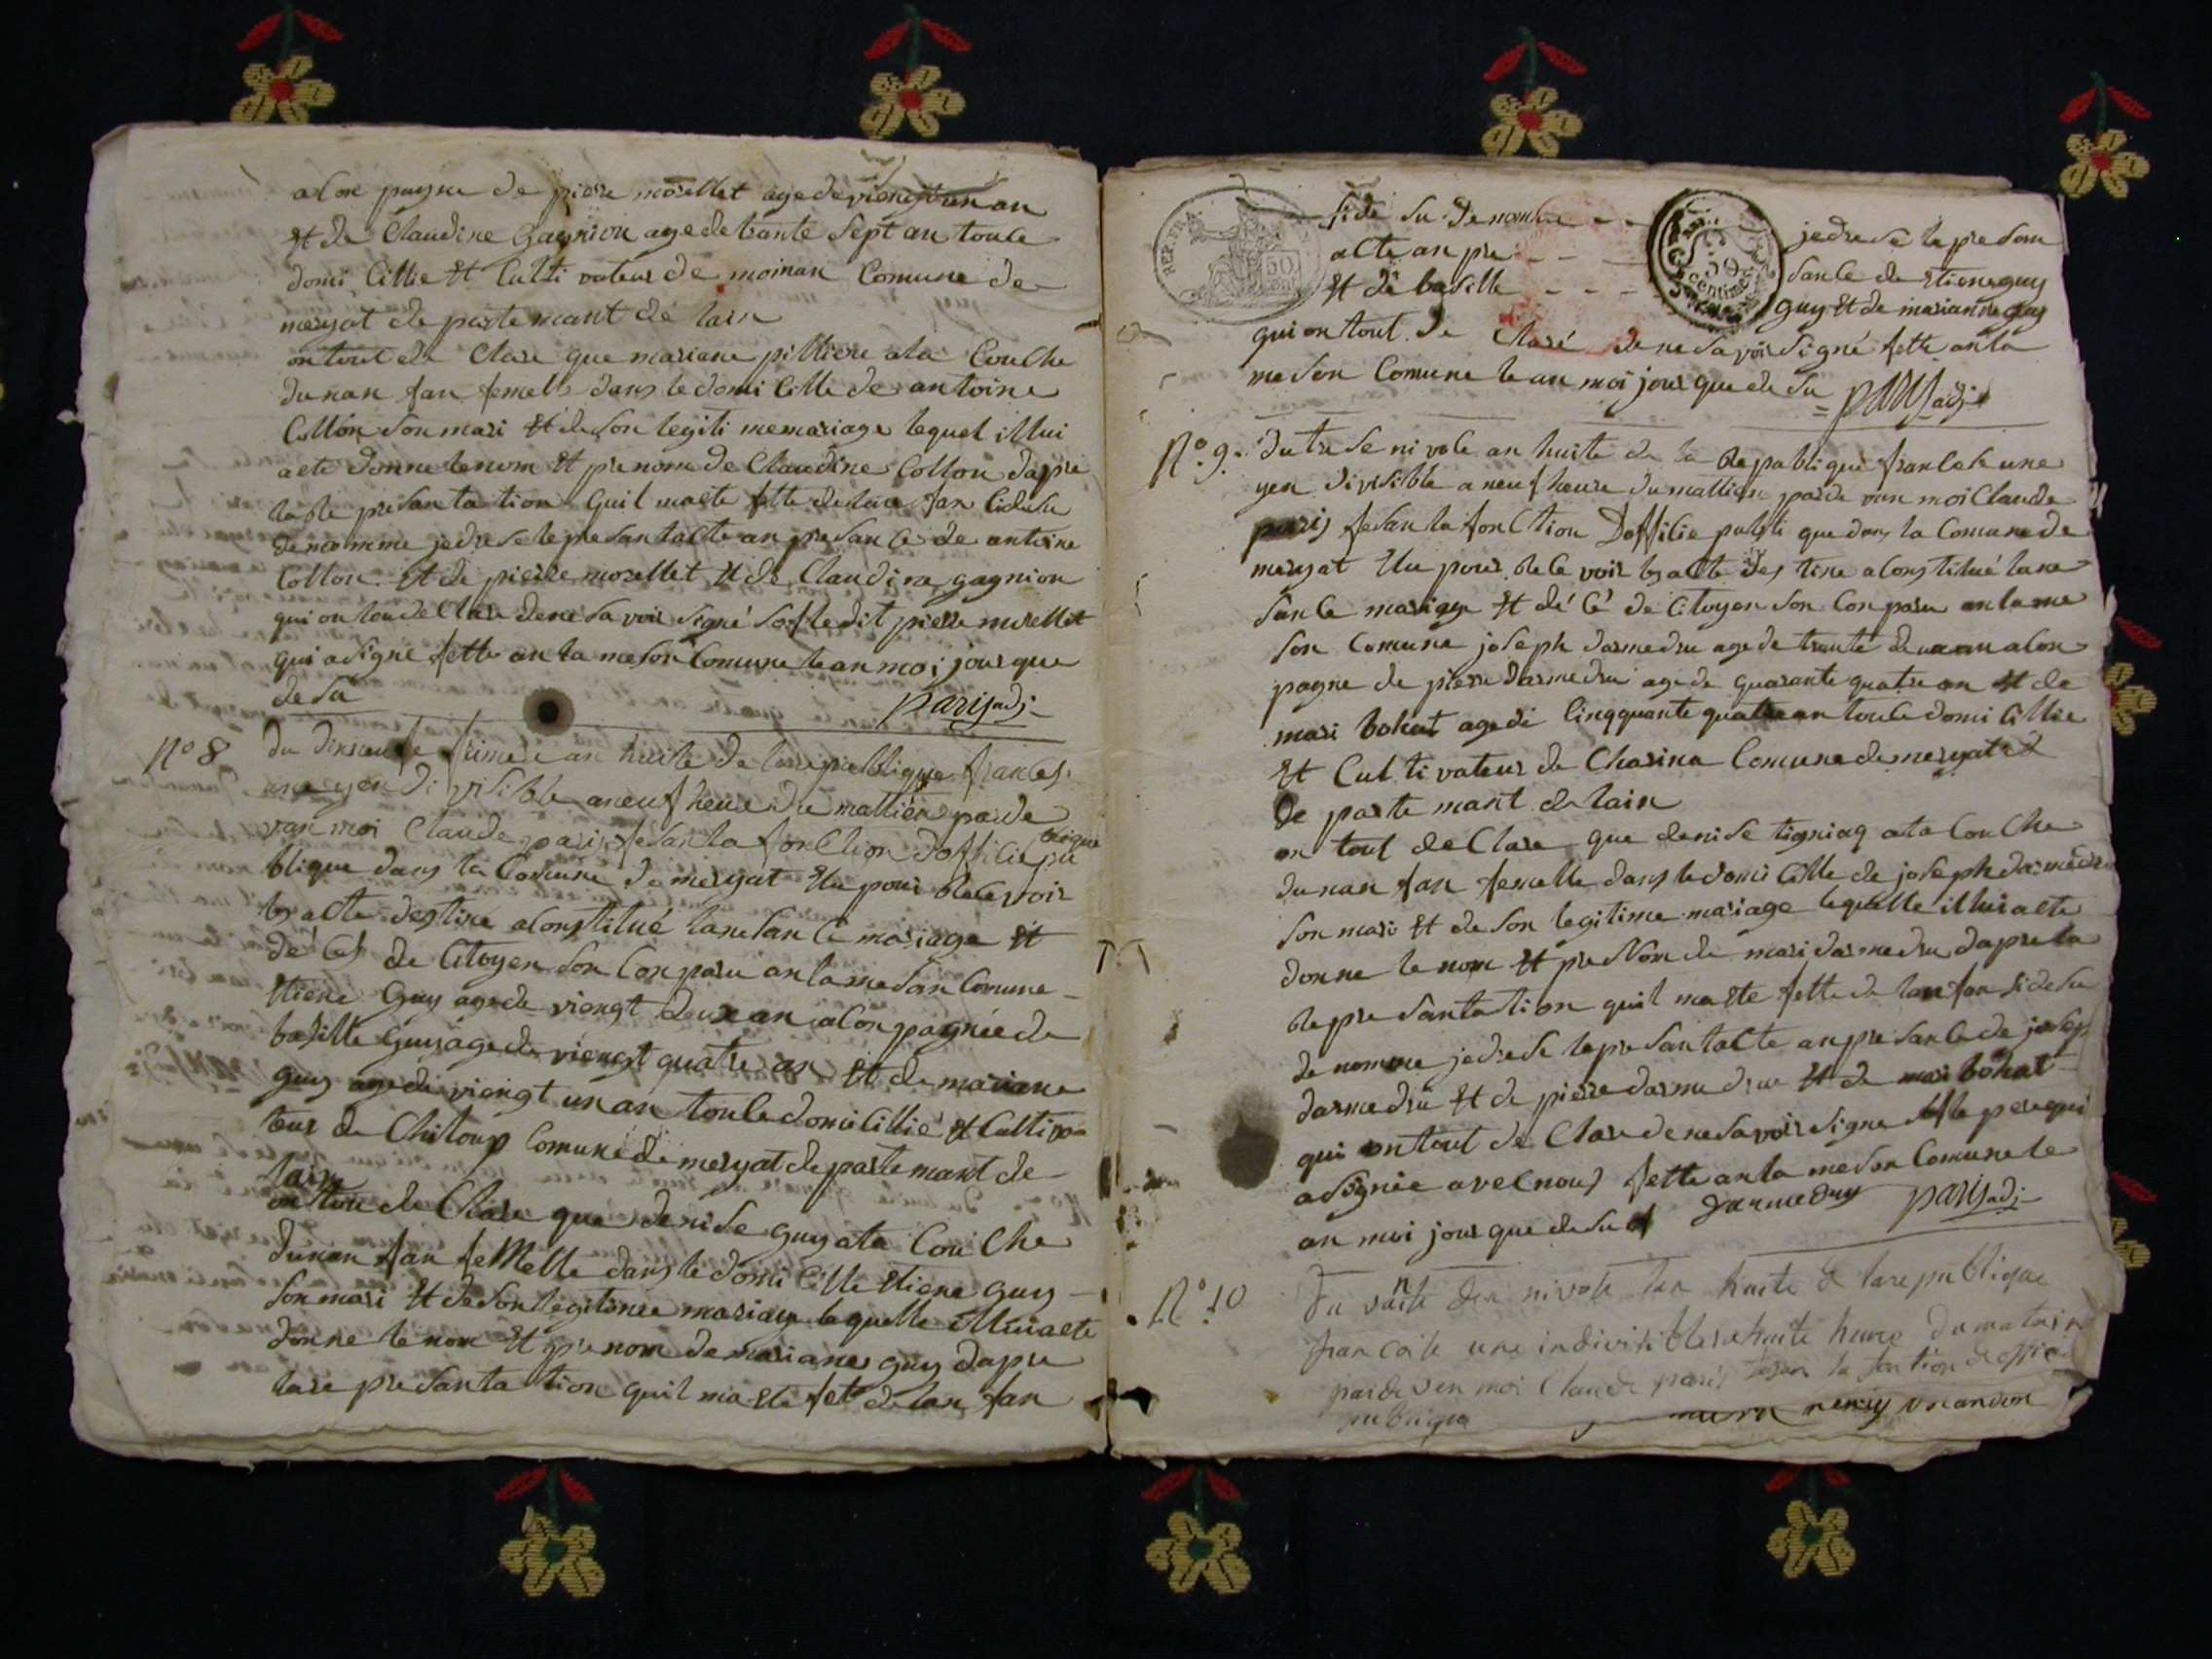 acon pagne de piere morellet age de viengt un an
et de Claudine Gagnion age de trante Sept an toule
domi Cillie et Culti vateur de moinan Comune de
meryat departemant de lain
on tout de Clare que mariane pilliere ata Couche
dunan fan femelle dans le domi Cille de antoine
Collon Son mari et de Son legiti me mariage lequel il lui
aete donne le nom et prenom de Claudine Collon dapre
la Re presanta tion quil ma ete fette de lan fan Cidesu
denomme je drese le presant acte an presan Ce de antoine
Collon et de pierre morellet et de Claudine gagnion
qui on tou de Clare dene Savoir Signé Sof le dit pierre morellet
qui a Signe fette an la meson Comune le an moi jour que
de Su
paris adj
N° 8 du disneufe frimere an huite de la republique francese
une yen di visible a neuf heure du mattien parde
van moi Claude paris fesan la fonction doffi Cie pu
blique dans la Comune de meryat Elu pour Rece voir
les acte destine a Constitué la nesan Ce mariage et
dé Cet de Citoyen Son Conparu an la meson Comune
etiene Guy age de viengt deux an acon pagnée de
basille Guy age de viengt quatre an et de mariane
guy age de viengt un an toule domicillié et Cultiva
teur de Chiloup Comune de meryat departemant de
lain
on tou de Clare que denise guy ata Couche
dunan fan femelle dans le domi Cille etiene guy
Son mari et de Son legitime mariage lequelle il lui aete
donne le nom et prenom de mariane guy dapre
la re presanta tion quil ma ete fet de lan fan
si de su denomme
je drese le presan
acte an pre
san Ce de etiene guy
et de basille
guy et de marianne guy
qui on tout de Claré de ne Savoir Signé fette an la
meson Comune le an moi jour que de Su paris adj
N° 9. du trese ni vose an huite de la Republique francese une
yen divisible a neuf heure du mattien parde van moi Claude
paris fesan la fonction Doffi Cie publi que dans la Comune de
meryat Elu pour Rece voir les acte des tine a Constitué la ne
san Ce mariage et dé Cé de Citoyen Son Conparu an la me
son Comune joseph darmedru age de trante deux an acon
pagne de pierre darmedru age de quarante quatre an et de
mari bohat age de Cinqquante quatre an toule domi Cillie
et Cul ti vateur de Charina Comune de meryat
de parte mant de lain
on tout de Clare que denise tigniaq ata Couche
dunan fan femelle dans le domi Cille de joseph darmedru
Son mari et de Son legitime mariage lequelle il lui aete
donne le nom et prenom de mari darmedru dapre la
Repre Santation quil ma ete fette de lan fan si desu
denomme je drese le presant acte an presan Ce de josep
darmedru et de pierre darmedrue et de mari bohat
qui on tout de Clare de ne Savoir Signe Sof le pere qui
a Signée avec nous fette an la meson Comune le
an moi jour que de Su darmedruy paris adj
N° 10 Du vainte deu nivose lan huite de la republique
francoise une indivisible a huite heure du matain
parde ven moi Claude paris fesan la fontion de officie
publique
REP. FRA.
50